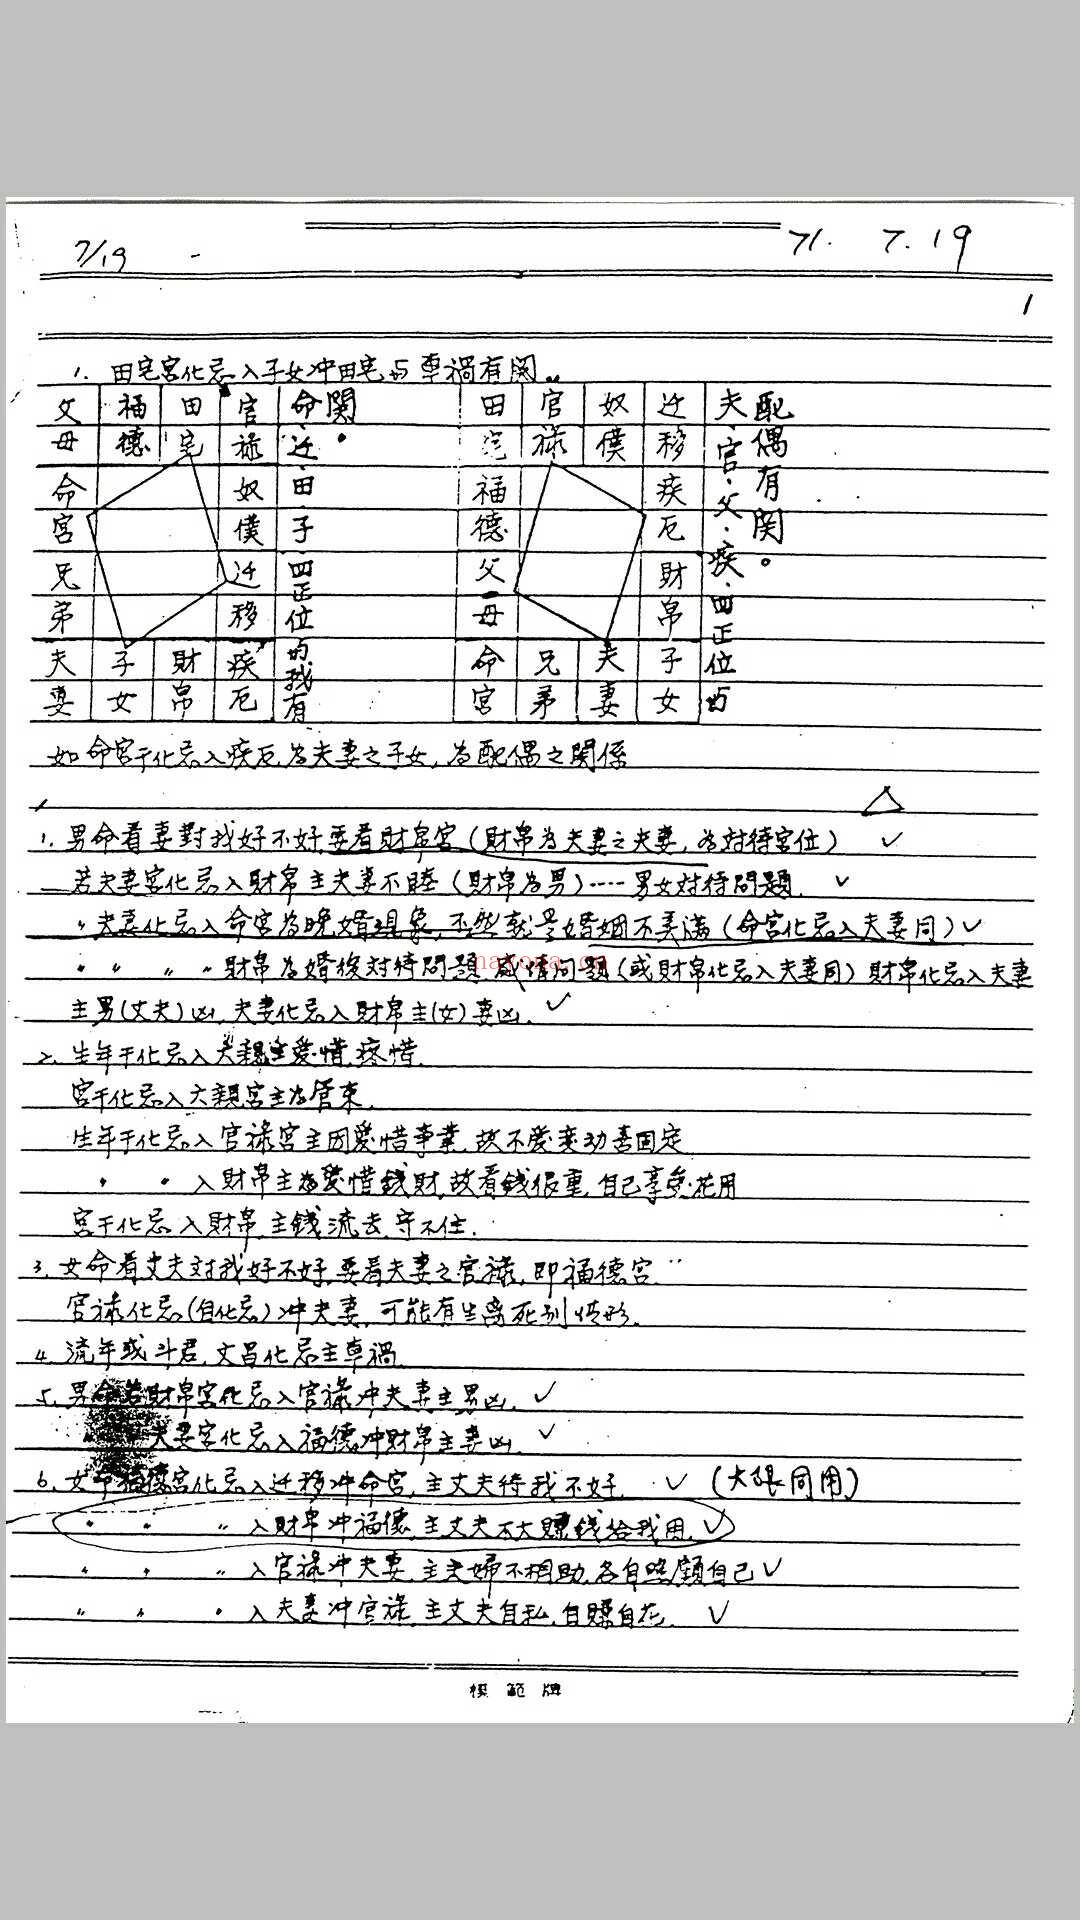 7/19
71. 7. 19
1
1. 田宅宮化忌入子女冲田宅与車禍有関。
父母 福德 田宅 官祿
命宮 奴僕
兄弟 迁移
夫妻 子女 財帛 疾厄
命.迁.田.子.四正位与我有
関。
田宅 官祿 奴僕 迁移
福德 疾厄
父母 財帛
命宮 兄弟 夫妻 子女
夫.官.父.疾.四正位与
配偶有関。
如命宮干化忌入疾厄為夫妻之子女,為配偶之関係
1. 男命看妻對我好不好,要看財帛宮(財帛為夫妻之夫妻,為対待宮位)
若夫妻宮化忌入財帛主夫妻不睦(財帛為男)····男女対待問題.
〃夫妻化忌入命宮為晚婚現象,否然就是婚姻不美滿(命宮化忌入夫妻同)
〃 〃 〃 〃財帛為婚後対待問題 感情问題(或財帛化忌入夫妻同)財帛化忌入夫妻
nayona.cn
主男(丈夫)凶,夫妻化忌入財帛主(女)妻凶.
2. 生年干化忌入六親主愛惜,疼惜.
宮干化忌入六親宮主為管束.
生年干化忌入官祿宮主因愛惜事業,故不愛変动喜固定
〃 〃 入財帛主為愛惜錢財,故看錢很重,自己享受花用
宮干化忌入財帛,主錢流去,守不住.
3. 女命看丈夫対我好不好,要看夫妻之官祿,即福德宮
官祿化忌(自化忌)冲夫妻,可能有生离死别情形.
4. 流年或斗君,文昌化忌主車禍
5. 男命若財帛宮化忌入官祿冲夫妻主男凶.
夫妻宮化忌入福德冲財帛主妻凶.
6. 女命福德宮化忌入迁移冲命宮,主丈夫待我不好. (大限同用)
〃 〃 〃 入財帛冲福德,主丈夫不大賺錢给我用.
〃 〃 〃 入官祿冲夫妻,主夫婦不相助,各自照顧自己
〃 〃 〃 入夫妻冲官祿,主丈夫自私,自賺自花.
模範牌